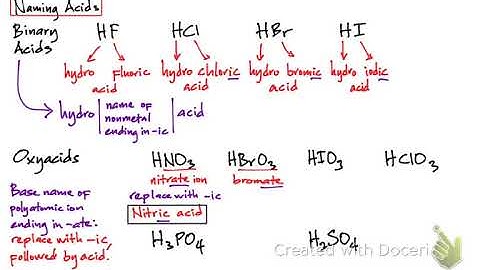 Naming Acids
Binary Acids
HF HCl HBr HI
hydro fluoric acid
hydro chloric acid
hydro bromic acid
hydro iodic acid
hydro | name of nonmetal ending in -ic | acid
Oxyacids
HNO3 HBrO3 HIO3 HClO3
nitrate ion
bromate
replace with -ic
Nitric acid
Base name of
polyatomic ion
ending in -ate:
replace with -ic,
followed by acid.
H3PO4 H2SO4
Created with Doceri